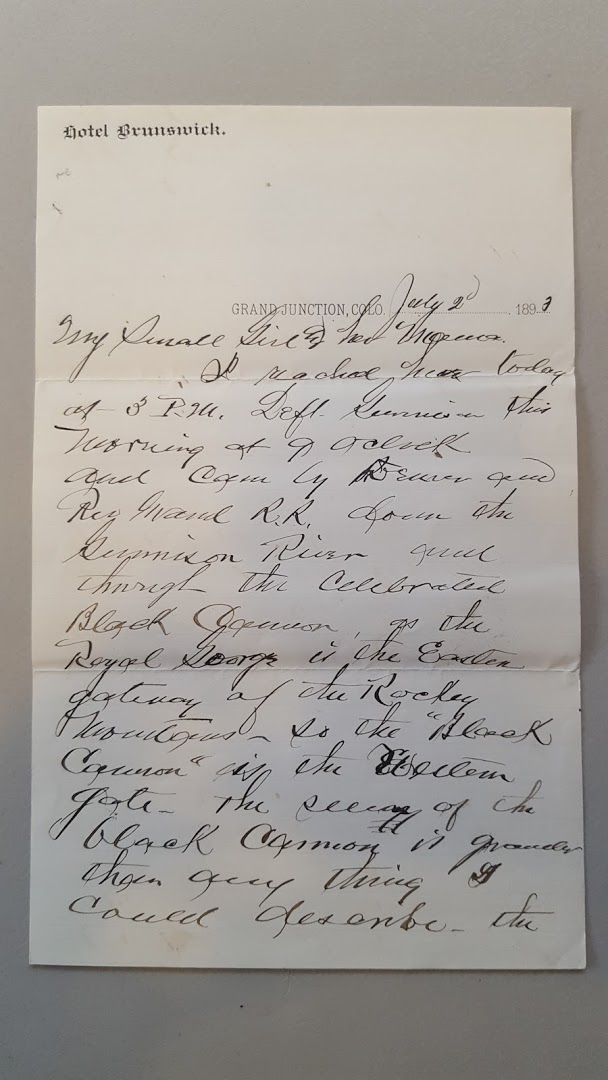 Hotel Brunswick.
GRAND JUNCTION, COLO. July 2d 1893
My Small Girl & her Mama.
I reached here today
at 3 P.M. Left Gunnison this
Morning at 9 oclock
and Came by Denver and
Rio Grand R.R. down the
Gunnison River and
through the Celebrated
Black Cannon, as the
Royal Gorge is the Eastern
gateway of the Rocky
Mountains - so the "Black
Cannon" is the Western
gate - The scenery of the
black Cannon is grander
than any thing I
Could describe - the